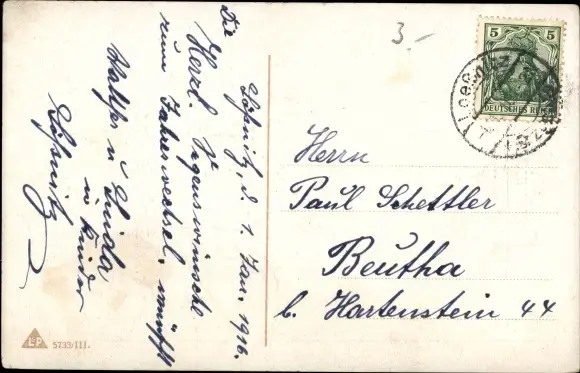 Lößnitz, d. 1. Jan. 1916.
Die
Herzl. Segenswünsche
zum Jahreswechsel, wünscht
u Linda
u Kinder
Lößnitz
3.-
5 5
DEUTSCHES REICH
Herrn
Paul Schettler
Beutha
b. Hartenstein 44
L&P 5733/III.